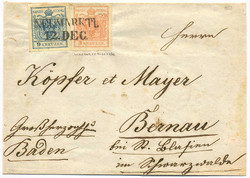 NEUMARKTL
12. DEC.
Herrn
Köpfer et Mayer
Großherzogth
Baden
Bernau
bei St. Blasien
im Schwarzwalde